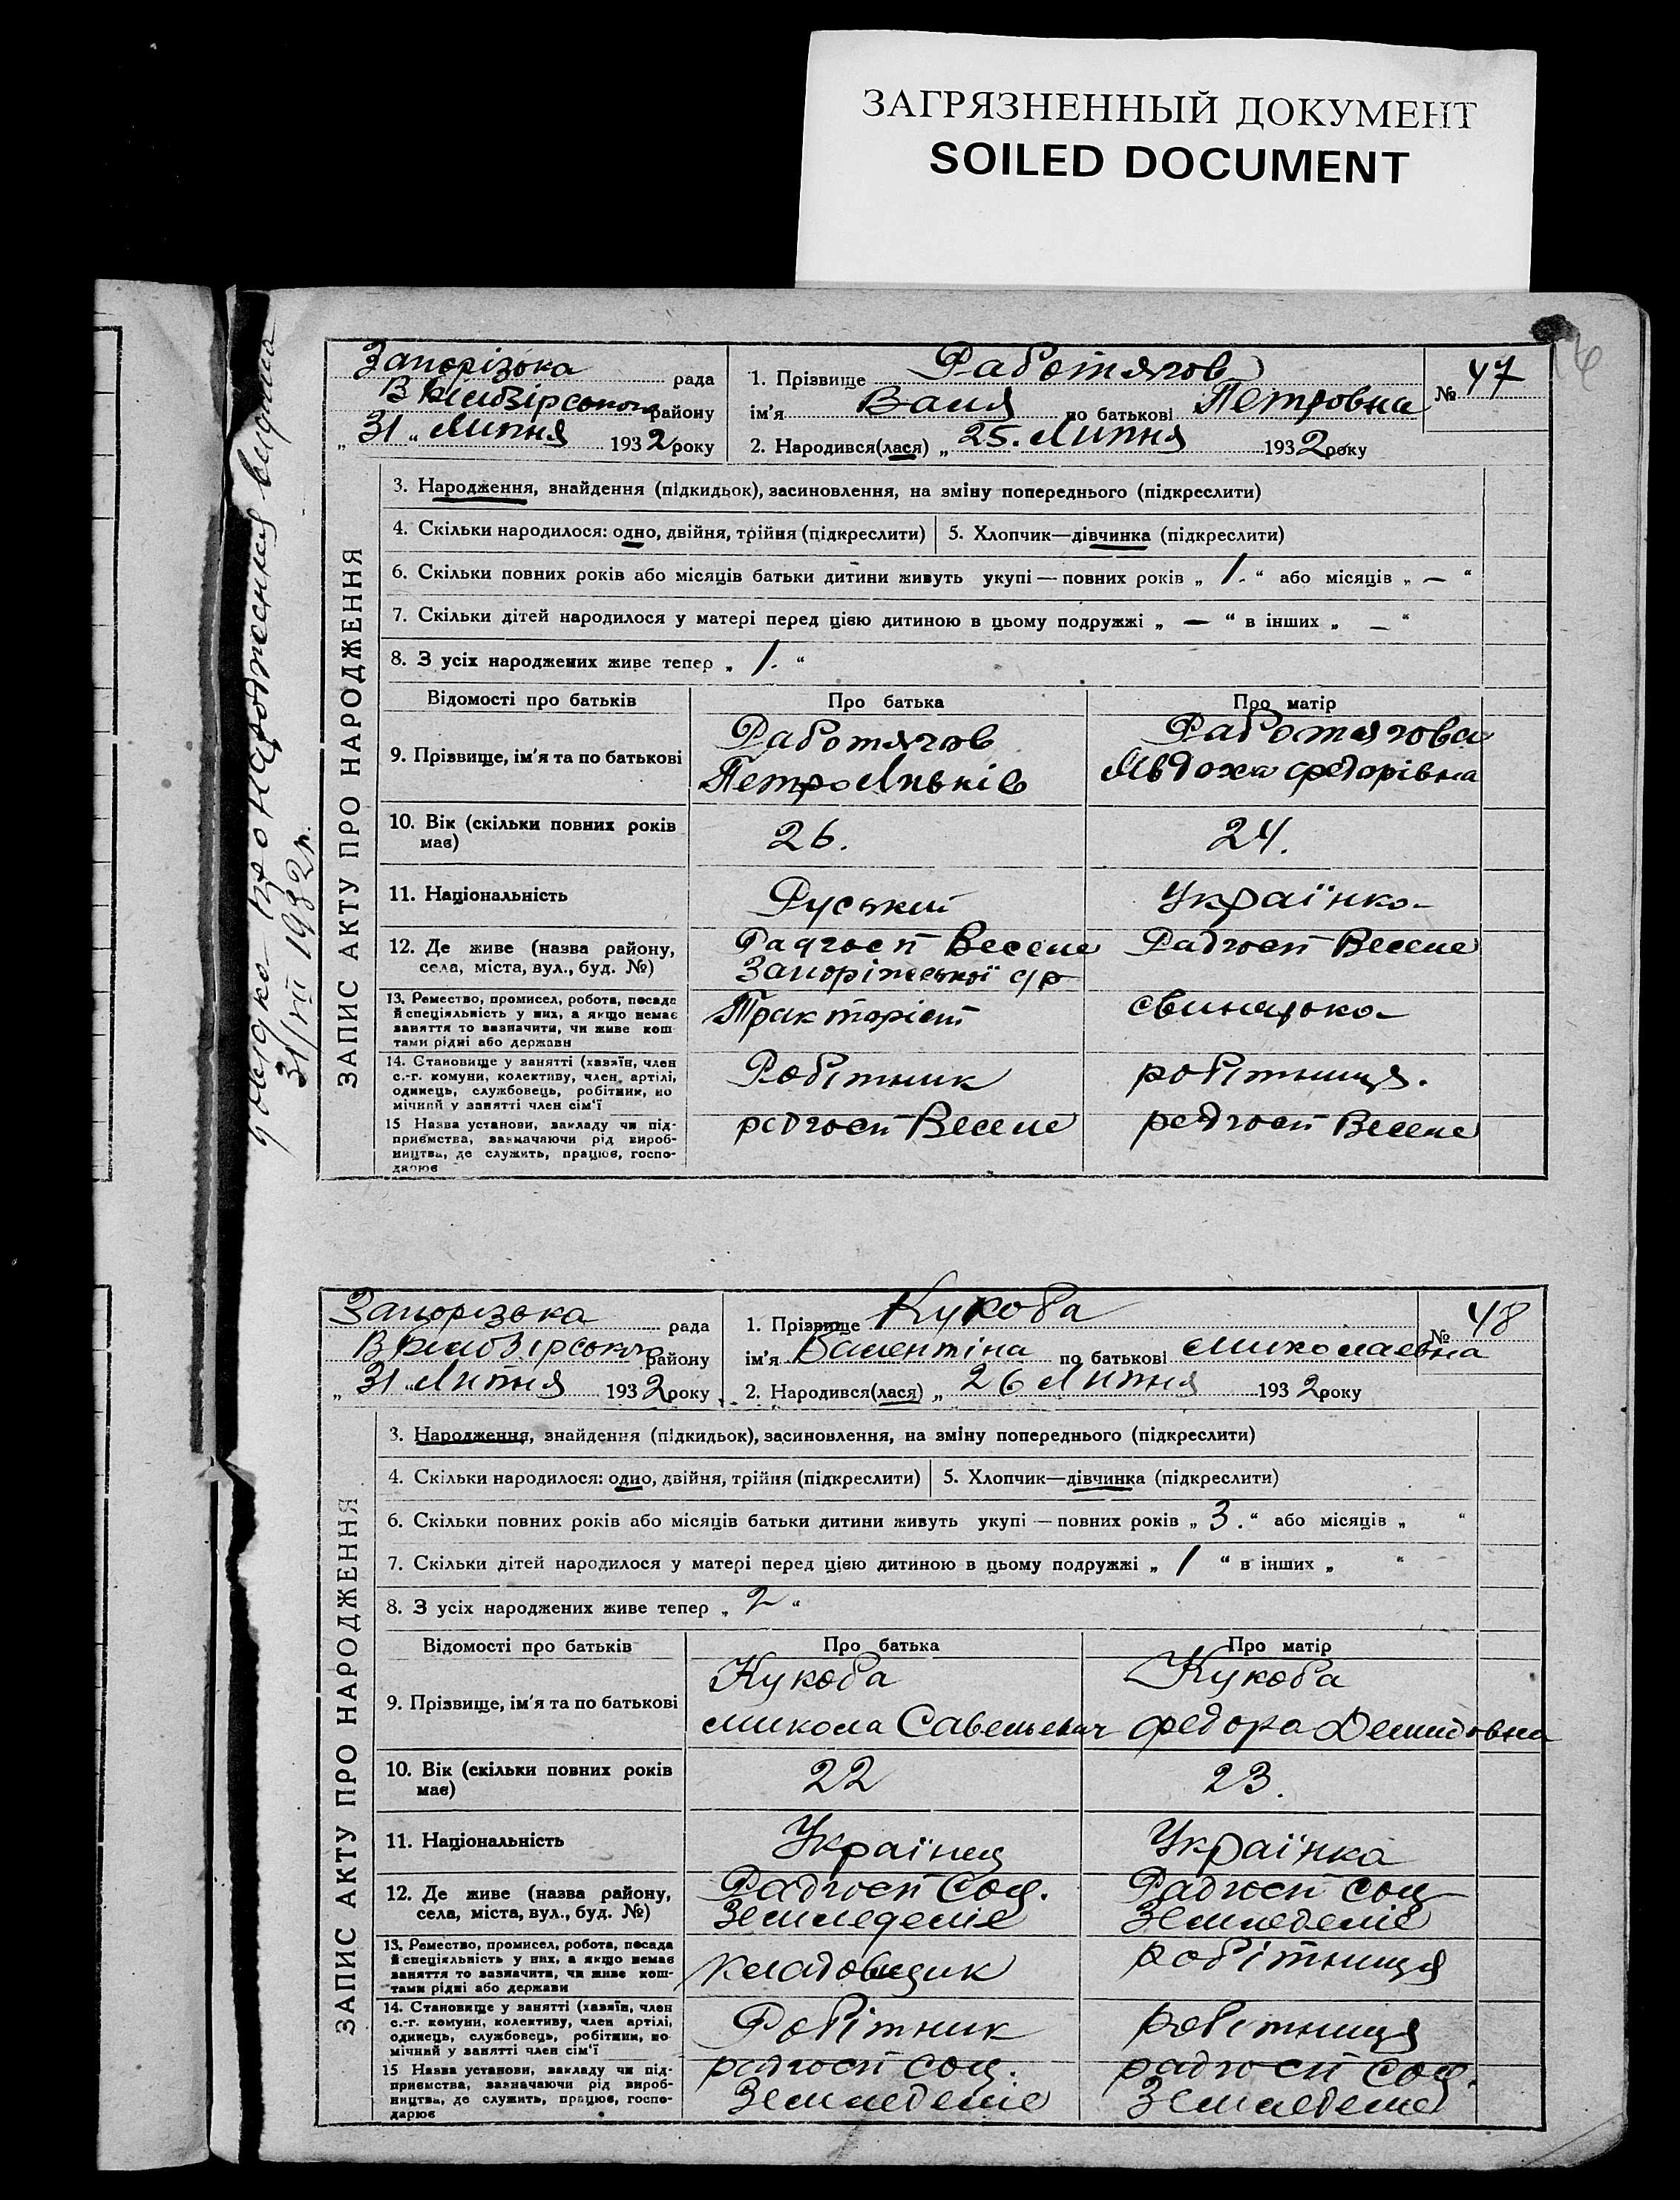 ЗАГРЯЗНЕННЫЙ ДОКУМЕНТ
SOILED DOCUMENT
про народження видана
31/VII 1932 р.
ЗАПИС АКТУ ПРО НАРОДЖЕННЯ
Запорізька рада
району
„ 31 " Липня 1932 року
1. Прізвище Работягов
ім'я Валя по батькові Петровна
№ 47
2. Народився(лася) „ 25. Липня 1932 року
3. Народження, знайдення (підкидьок), засиновлення, на зміну попереднього (підкреслити)
4. Скільки народилося: одно, двійня, трійня (підкреслити) 5. Хлопчик—дівчинка (підкреслити)
6. Скільки повних років або місяців батьки дитини живуть укупі — повних років „ 1. " або місяців „ — "
7. Скільки дітей народилося у матері перед цією дитиною в цьому подружжі „ — " в інших „ — "
8. З усіх народжених живе тепер „ 1. "
Відомості про батьків Про батька Про матір
9. Прізвище, ім'я та по батькові
Работягов
Петро
Работягова
Явдоха Федорівна
10. Вік (скільки повних років має) 26. 24.
11. Національність Руський Українка
12. Де живе (назва району, села, міста, вул., буд. №)
Радгосп Веселе
Запоріжської с/р
Радгосп Веселе
13. Ремество, промисел, робота, посада й спеціяльність у них, а якщо немає заняття то зазначити, чи живе коштами рідні або держави
Тракторіст
свинарка
14. Становище у занятті (хазяїн, член с.-г. комуни, колективу, член артілі, одинець, службовець, робітник, помічний у занятті член сім'ї
Робітник
робітниця.
15 Назва установи, закладу чи підприємства, зазначаючи рід виробництва, де служить, працює, господарює
радгосп Веселе
радгосп Веселе
ЗАПИС АКТУ ПРО НАРОДЖЕННЯ
Запорізька рада
району
„ 31 " Липня 1932 року
1. Прізвище Кукоба
ім'я Валентіна по батькові Миколаевна
№ 48
2. Народився(лася) „ 26 Липня 1932 року
3. Народження, знайдення (підкидьок), засиновлення, на зміну попереднього (підкреслити)
4. Скільки народилося: одно, двійня, трійня (підкреслити) 5. Хлопчик—дівчинка (підкреслити)
6. Скільки повних років або місяців батьки дитини живуть укупі — повних років „ 3. " або місяців „ "
7. Скільки дітей народилося у матері перед цією дитиною в цьому подружжі „ 1 " в інших „ "
8. З усіх народжених живе тепер „ 2 "
Відомості про батьків Про батька Про матір
9. Прізвище, ім'я та по батькові
Кукоба
Микола Савельевич
Кукоба
Федора Демидовна
10. Вік (скільки повних років має) 22 23.
11. Національність Українец Українка
12. Де живе (назва району, села, міста, вул., буд. №)
Радгосп Соц.
Земледеліе
Радгосп Соц
Земледеліе
13. Ремество, промисел, робота, посада й спеціяльність у них, а якщо немає заняття то зазначити, чи живе коштами рідні або держави
кладовщик
робітниця
14. Становище у занятті (хазяїн, член с.-г. комуни, колективу, член артілі, одинець, службовець, робітник, помічний у занятті член сім'ї
Робітник
робітниця
15 Назва установи, закладу чи підприємства, зазначаючи рід виробництва, де служить, працює, господарює
радгосп Соц.
Земледеліе
радгосп Соц.
Земледеліе